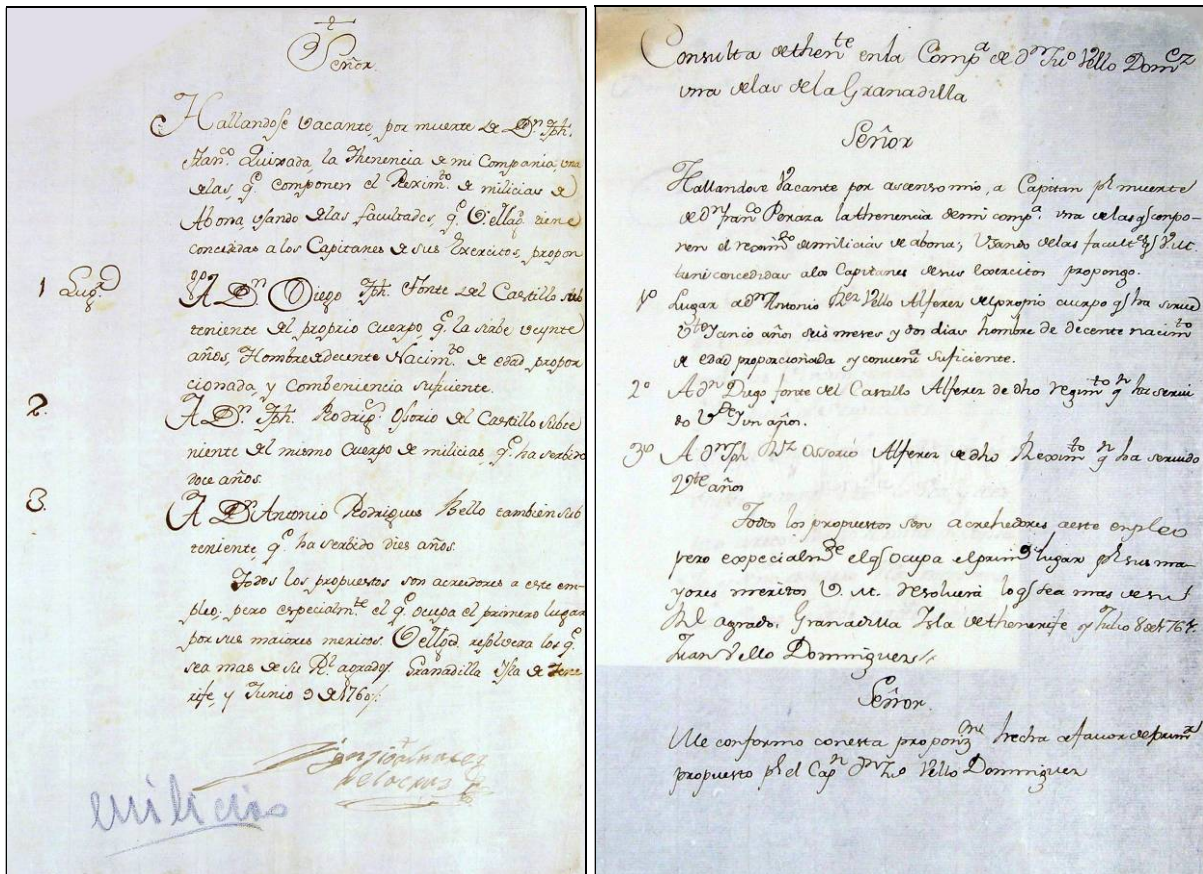 Señor
Hallandose vacante, por muerte de Dn. Jph.
Franco. Quixada, la Thenencia de mi Compania, una
delas, qe. componen el Reximto. de milicias de
Abona, usando delas facultades, qe. V. tiene
concedidas a los Capitanes de sus Exercitos, propon
go
1 Lugr. A Dn. Diego Jph. Fonte del Castillo sub
teniente del proprio cuerpo qe. la sirbe veynte
años, Hombre de decente Nacimto. de edad propor
cionada, y Combeniencia suficiente.
2. A Dn. Jph. Rodrigs. Osorio del Castillo Subte
niente del mismo Cuerpo de milicias, qe. ha serbido
doce años.
3. A Dn. Antonio Rodrigues Bello tambien sub
teniente, qe. ha serbido dies años.
Todos los propuestos son acreidores a este em-
pleo; pero especialmte. el qe. ocupa el primero lugar
por sus maiores meritos. V. resolvera los qe.
sea mas de su Rl. agrado. Granadilla Ysla de Tene
rife, y Junio 9 de 1760.
milicias
Consulta de thente en la Compa. de Dn Juo Vello Domcz
una de las de la Granadilla
Señor
Hallandose vacante por ascenso mio, a Capitan pr muerte
de Dn franco Peraza la thenencia de mi compa. una de las q conpo-
nen el reximto de milicias de abona; Usando de las facultes q V. M.
tiene concedidas a los Capitanes de sus Exercitos propongo.
1o Lugar a Dn Antonio Rez Vello Alferez del propio cuerpo q ha servido
Vte y cinco años seis meses y dos dias hombre de decente nacimto
de edad proporcionada y convena. Suficiente.
2o A Dn Diego fonte del Castillo Alferez de dho regimto qn ha servi
do Vte y un años.
3o A Dn Jph Rz Ossorio Alferez de dho Reximto qn ha servido
Vte años
Todos los propuestos son acrehedores a este enpleo
pero expecialmte el q ocupa el primo lugar pr sus ma-
yores meritos V. M. resolvera lo q sea mas de su
Rl agrado. Granadilla Isla de thenerife y Julio 8 de 1767
Juan Vello Dominguez
Señor.
Me conformo con esta proporizn hecha a favor de primr
propuesto pr el Capn Dn Juo Vello Dominguez